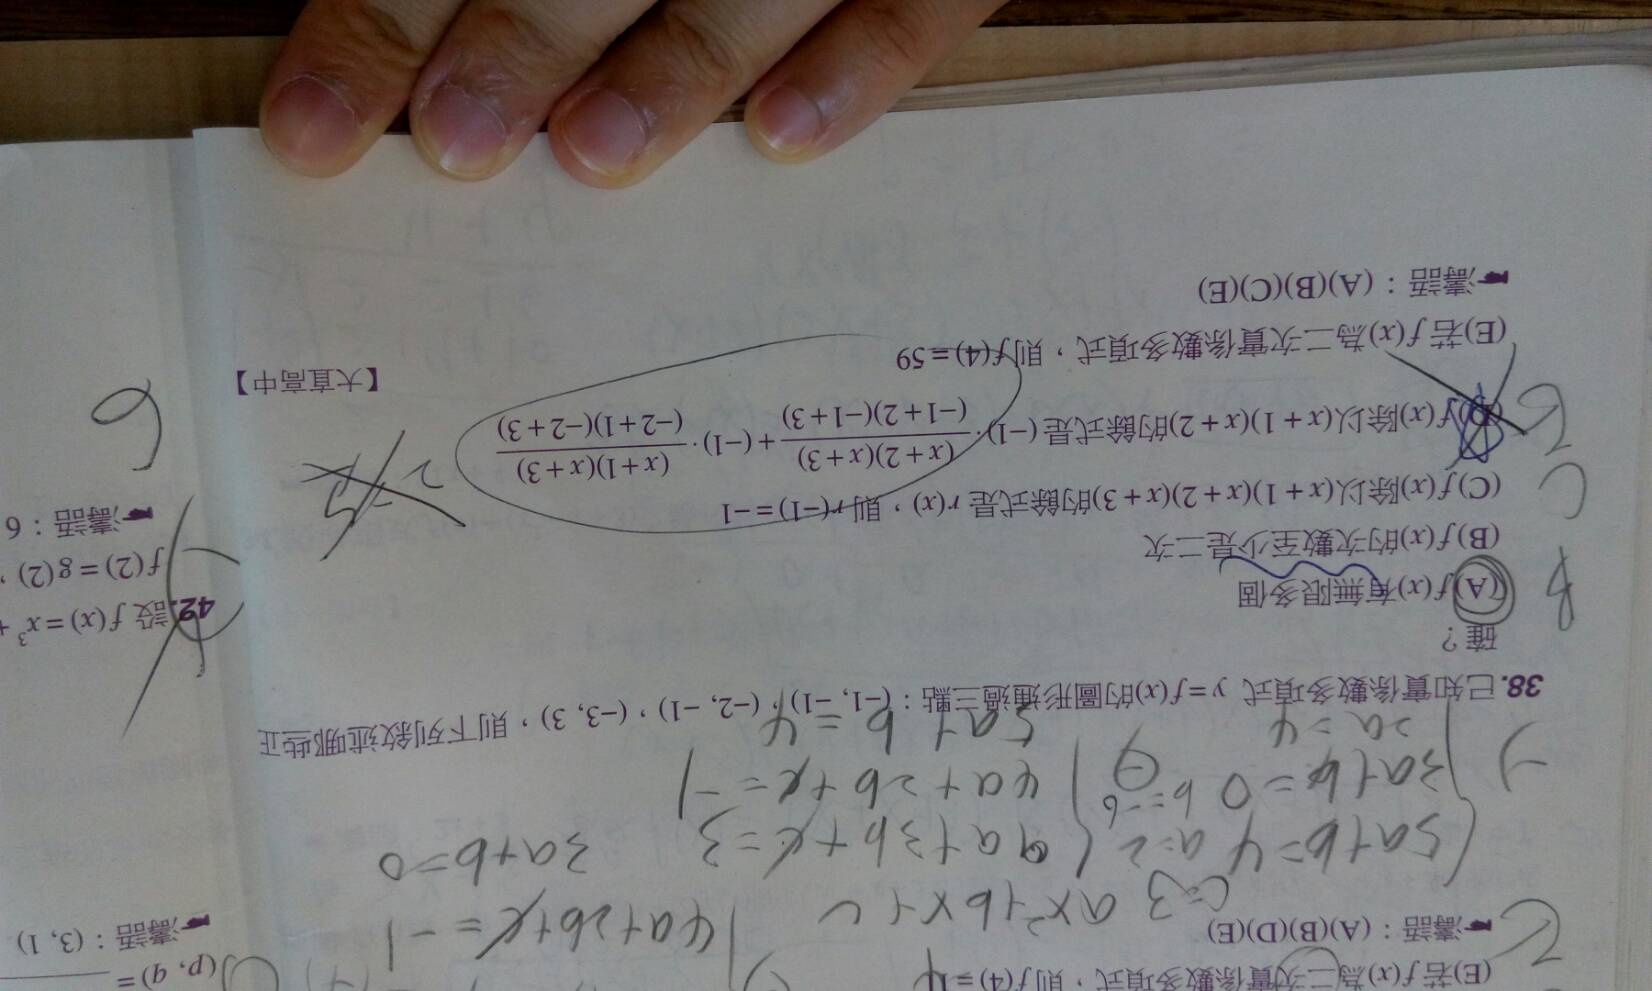 (E)若 f(x)為二次實係數多項式，則 f(4)=
濤語：(A)(B)(D)(E)
c=3 ax²+bx+c
4a+2b+c=-1
5a+b=4 a=2
9a+3b+c=3
3a+b=0
3a+b=0 b=-6
4a+2b+c=-1
2a=4
5a+b=4
38.已知實係數多項式 y=f(x)的圖形通過三點：(−1, −1)，(−2, −1)，(−3, 3)，則下列敘述哪些正
確？
(A)f(x)有無限多個
(B)f(x)的次數至少是二次
(C)f(x)除以(x+1)(x+2)(x+3)的餘式是 r(x)，則 r(−1)=−1
(D)f(x)除以(x+1)(x+2)的餘式是 (−1)·(x+2)(x+3)/(−1+2)(−1+3)+(−1)·(x+1)(x+3)/(−2+1)(−2+3)
(E)若 f(x)為二次實係數多項式，則 f(4)=59
【大直高中】
濤語：(A)(B)(C)(E)
(p, q)=
濤語：(3, 1)
42.設 f(x)=x³+
f(2)=g(2)，
濤語：6
6